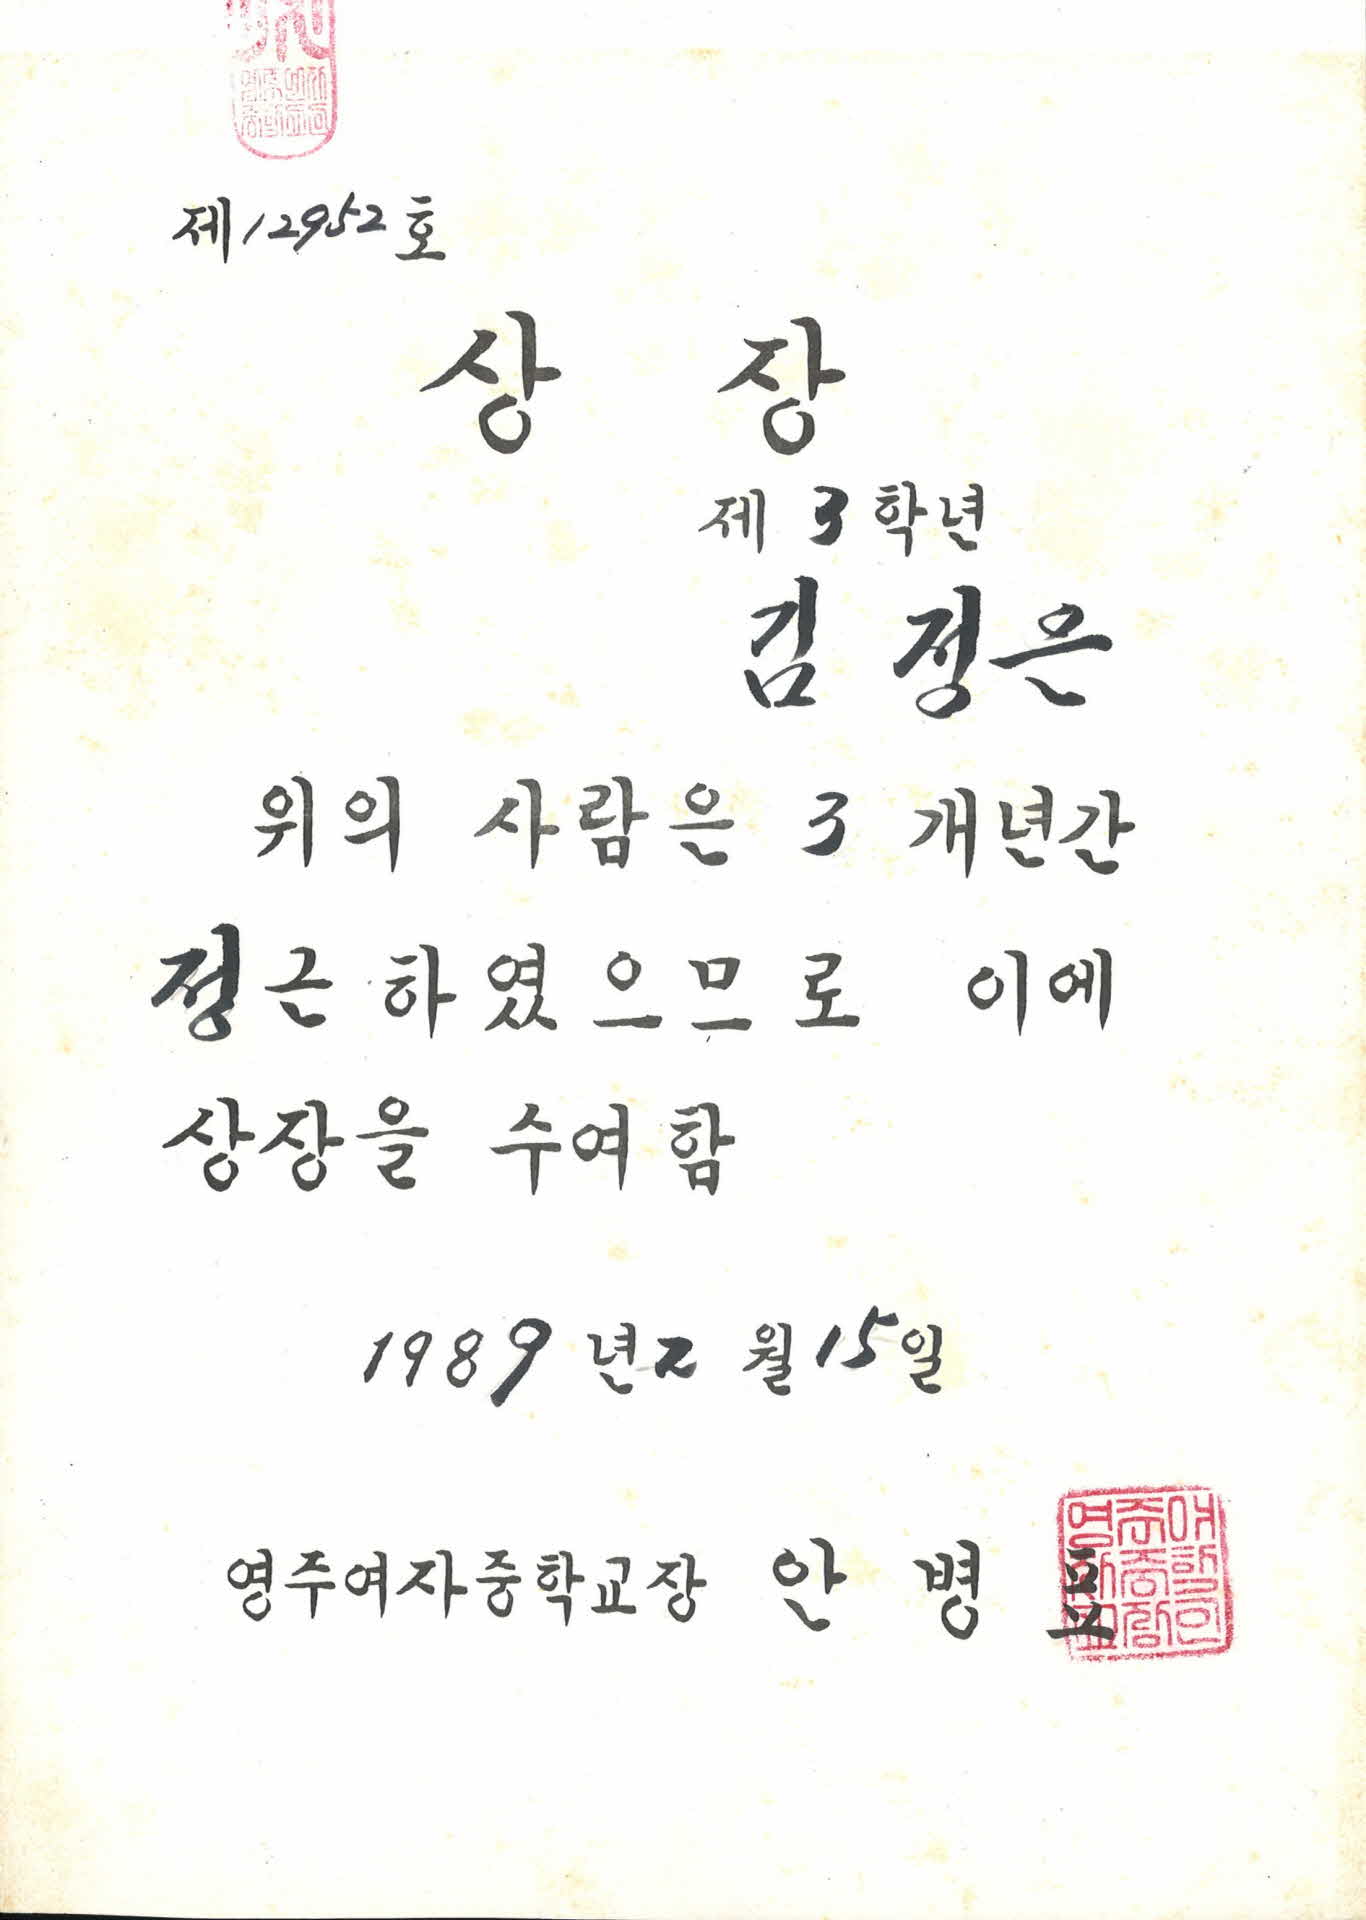 제12952호
상 장
제 3 학년
김 정은
위의 사람은 3 개년간
정근 하였으므로 이에
상장을 수여함
1989년 2월 15일
영주여자중학교장 안 병 표